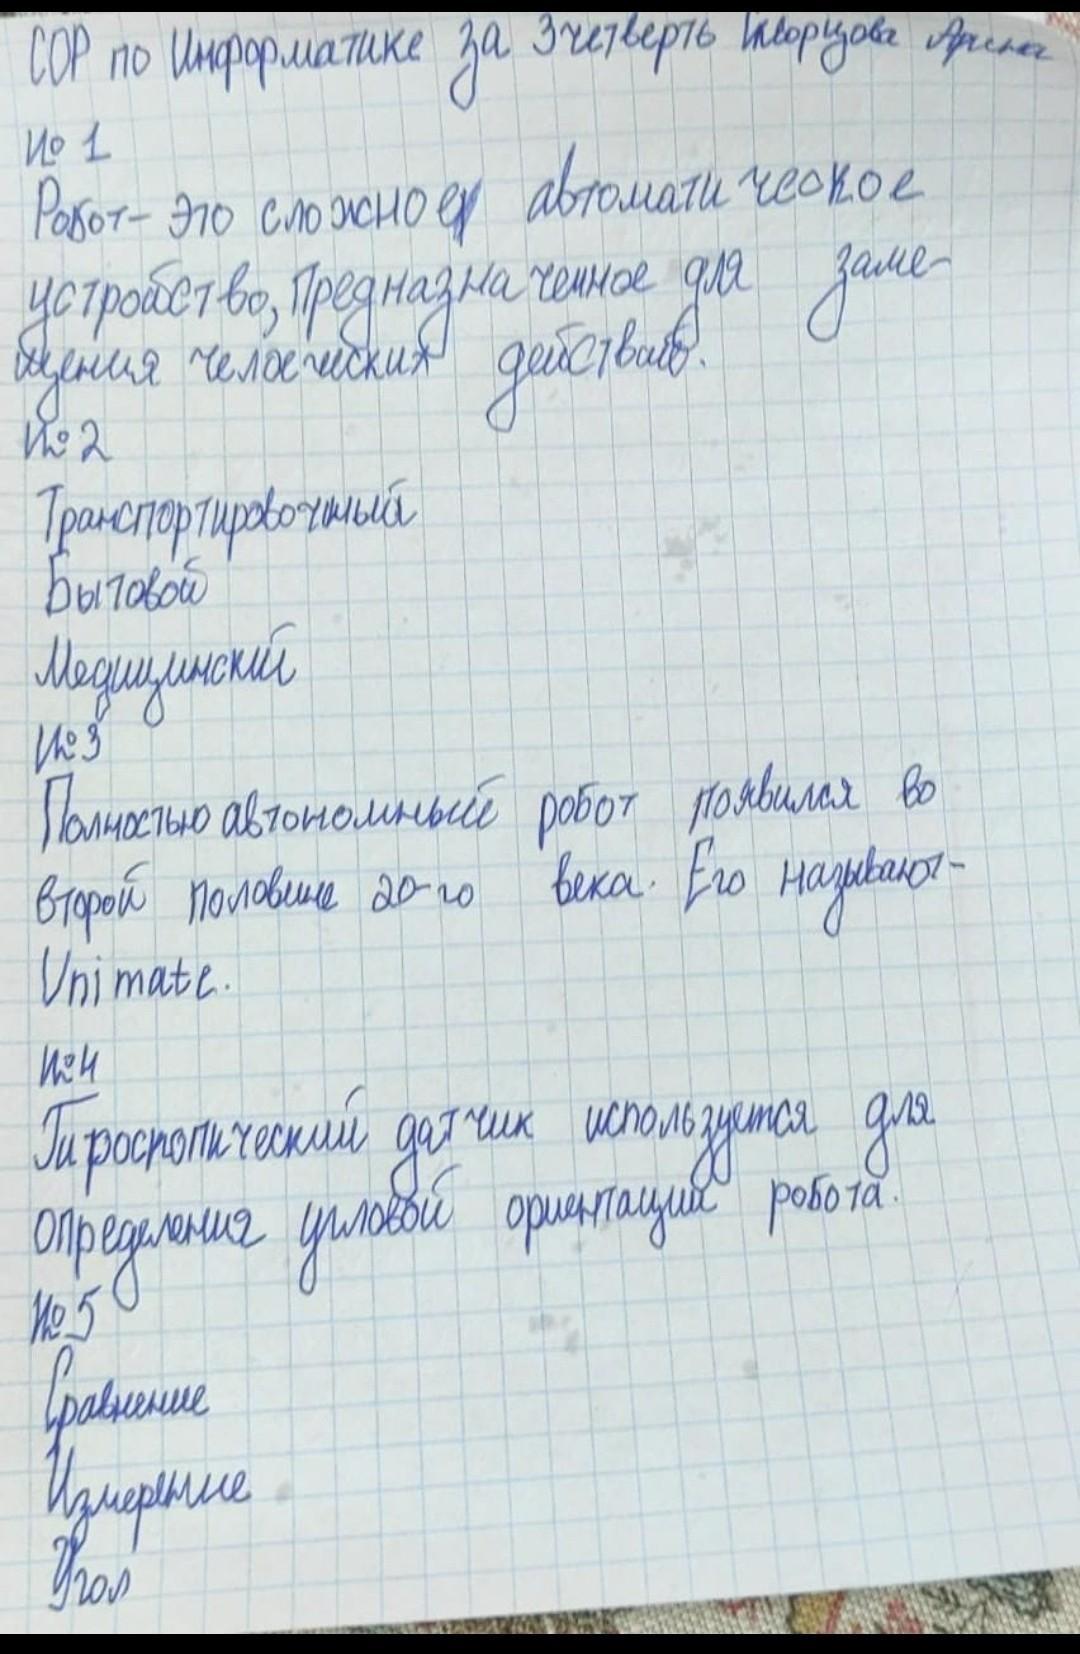 СОР по Информатике за 3 четверть Скворцова Арина
№ 1
Робот- это сложное автоматическое
устройство, предназначенное для заме-
щения челоеческих действий.
№ 2
Транспортировочный
Бытовой
Медицинский
№3
Полностью автономный робот появился во
второй половине 20-го века. Его называют-
Unimate.
№4
Гироскопический датчик используется для
определения угловой ориентации робота.
№5
Сравнение
Измерение
Угол